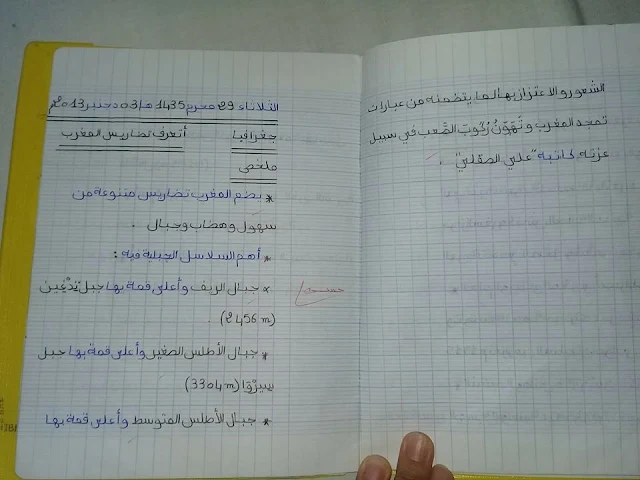 الشعور والاعتزاز بها لما يتضمنه من عبارات
تمجد المغرب وتَهَوّنُ رُكُوبَ الصَّعب في سبيل
عزته. كاتبه "علي الصقلي".
الثلاثاء 29 محرم 1435هـ/03 دجنبر 2013م
جغرافيا أتعرف تضاريس المغرب
ملخص
* يضم المغرب تضاريس متنوعة من
سهول وهضاب وجبال.
* أهم السلاسل الجبلية فيه:
* جبال الريف وأعلى قمة بها جبل تِدْغِين
(2456m).
* جبال الأطلس الصغير وأعلى قمة بها جبل
سِيرْوَا (3304m)
* جبال الأطلس المتوسط وأعلى قمة بها